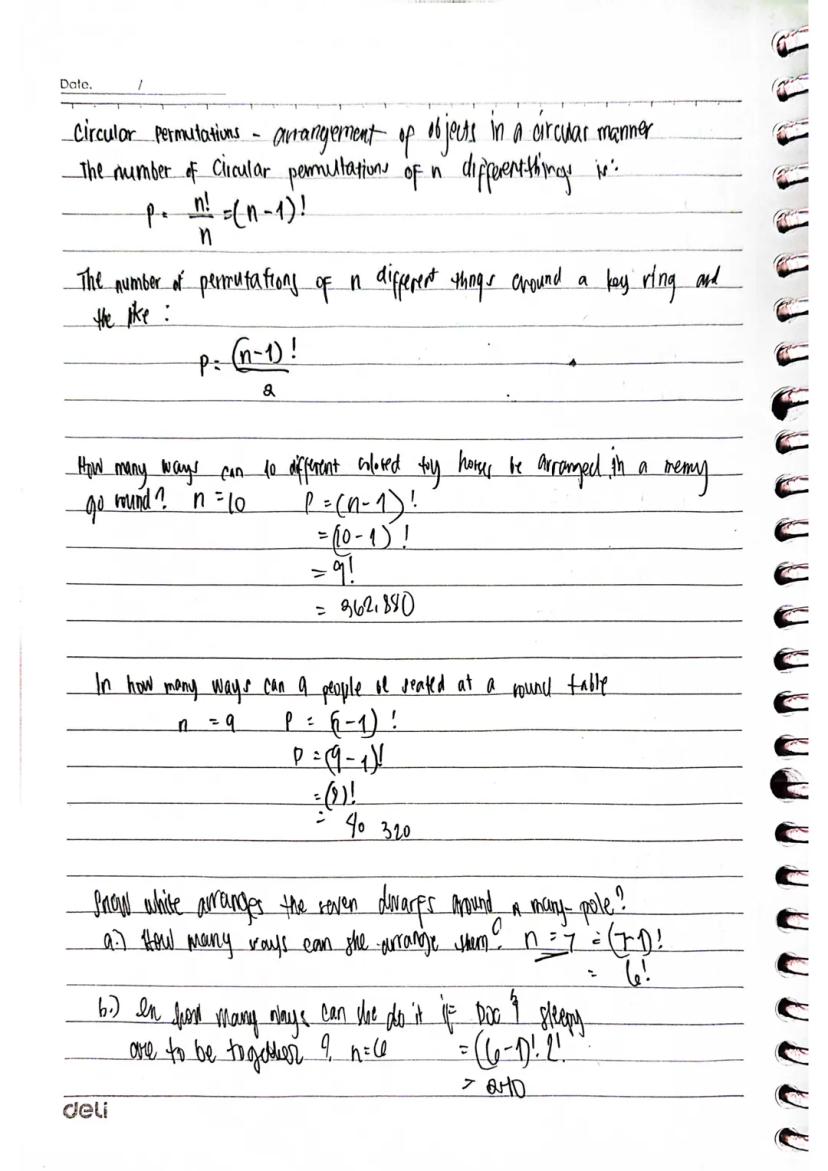 Date. /
Circular permutations - arrangement of objects in a circular manner
The number of Circular permultations of n different things is:
P = n!/n = (n-1)!
The number of permutations of n different thngs around a key ring and
the like :
P = (n-1)!/2
How many ways can 10 different colored toy horses be arranged in a merry
go round? n = 10 P = (n-1)!
= (10-1)!
= 9!
= 362,880
In how many ways can 9 people be seated at a round table
n = 9 P = (n-1)!
P = (9-1)!
= (8)!
= 40 320
Snow white arranges the seven dwarfs around a many-pole?
a.) How many ways can she arrange them? n = 7 = (7-1)!
= 6!
b.) In how many ways can she do it if Doc & sleepy
are to be together ? n=6 = (6-1)! 2!
= 240
deli